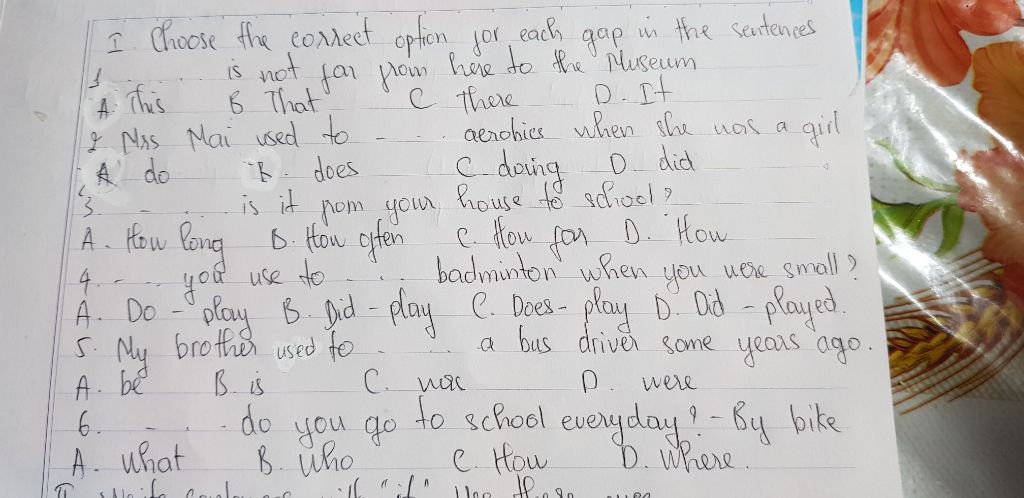 I. Choose the correct option for each gap in the sentences
1 ........ is not far from here to the Museum
A. This B That C there D. It
2 Mrs Mai used to ...... aerobics when she was a girl
A do B. does C. doing D. did
3. ........ is it from your house to school?
A. How long B. How often C. How far D. How
4. ..... you use to ..... badminton when you were small?
A. Do - play B. Did - play C. Does - play D. Did - played.
5. My brother used to ...... a bus driver some years ago.
A. be B. is C. was D. were
6. ..... do you go to school everyday? - By bike
A. what B. who C. How D. Where.
II "it" Use these